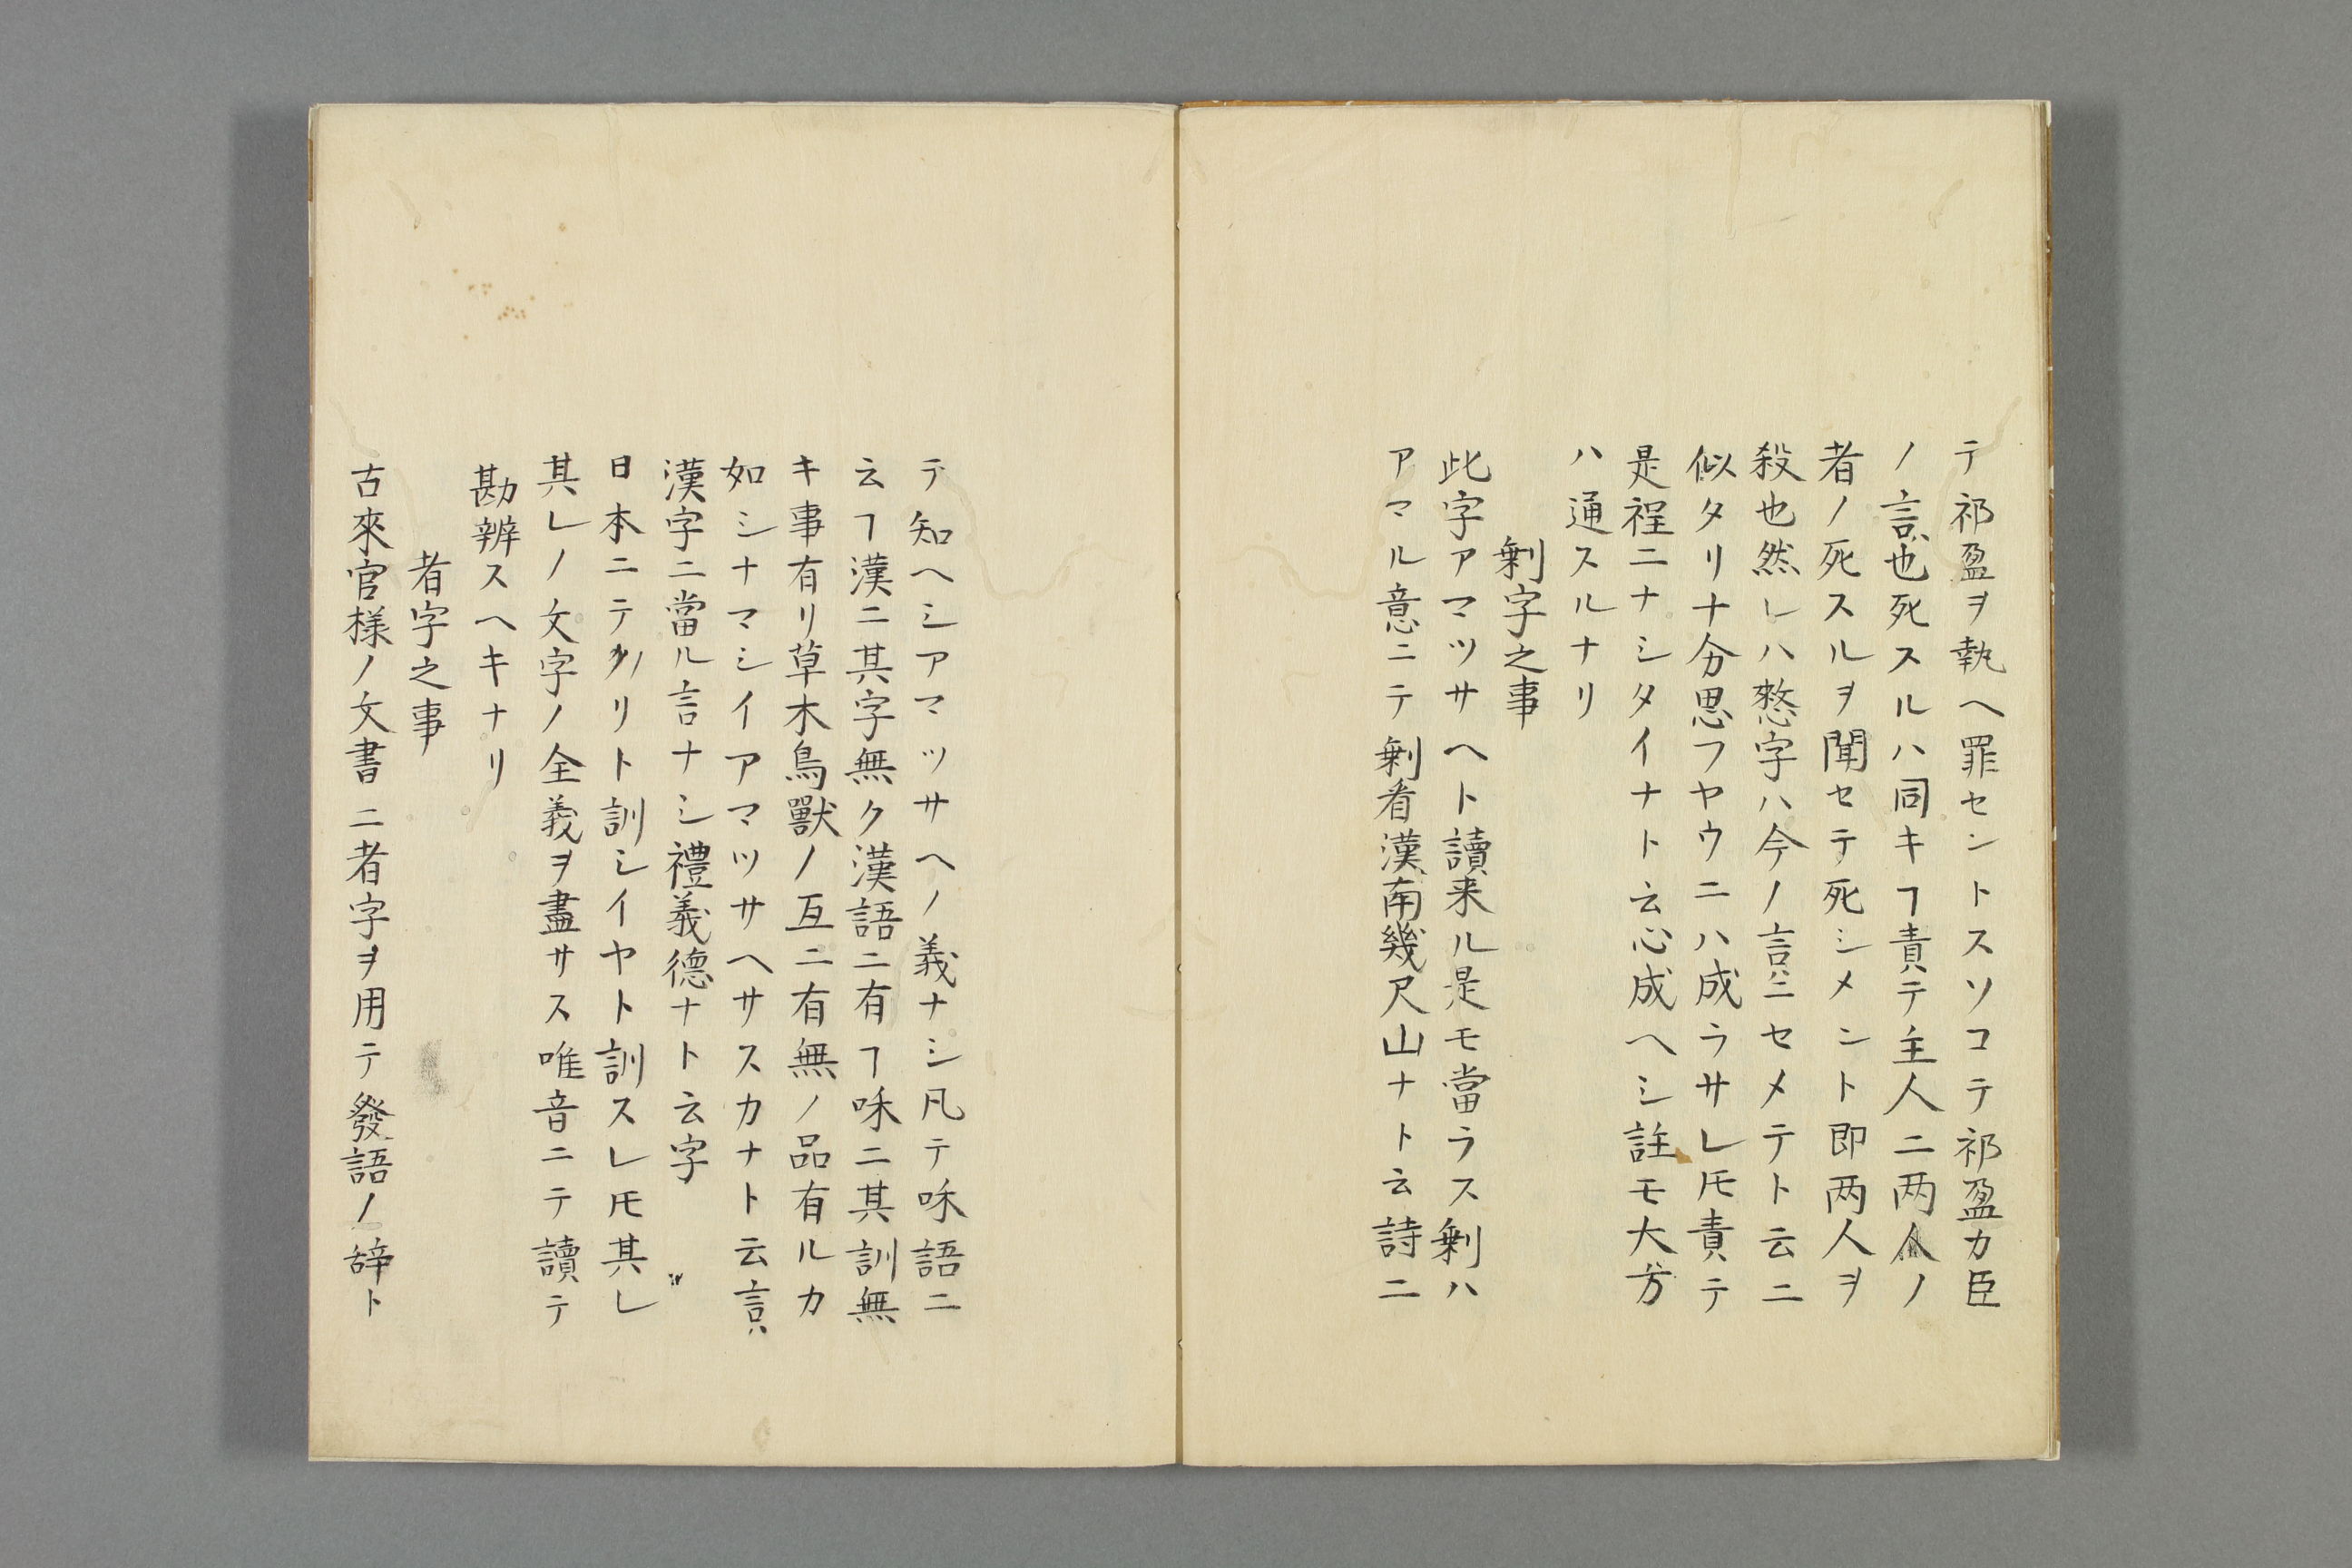 テ祁盈ヲ執ヘ罪セントスソコテ祁盈カ臣
ノ言也死スルハ同キヿ責テ主人ニ两人ノ
者ノ死スルヲ聞セテ死シメント即两人ヲ
殺也然レハ憗字ハ今ノ言ニセメテト云ニ
似タリナ分思フヤウニハ成ラサレ𪜈責テ
是程ニナシタイナト云心成ヘシ註モ大方
ハ通スルナリ
剰字之事
此字アマツサヘト讀来ル是モ當ラス剰ハ
アマル意ニテ剰看漢南幾尺山ナト云詩ニ
テ知ヘシアマツサヘノ義ナシ凡テ咊語ニ
云ヿ漢ニ其字無ク漢語ニ有ヿ咊ニ其訓無
キ事有リ草木鳥獸ノ互ニ有無ノ品有ルカ
如シナマシイアマツサヘサスカナト云言
漢字ニ當ル言ナシ禮義德ナト云字
日本ニテノリト訓シイヤト訓スレ𪜈其レ
其レノ文字ノ全義ヲ盡サス唯音ニテ讀テ
勘辨スヘキナリ
者字之事
古來官様ノ文書ニ者字ヲ用テ發語ノ辞ト